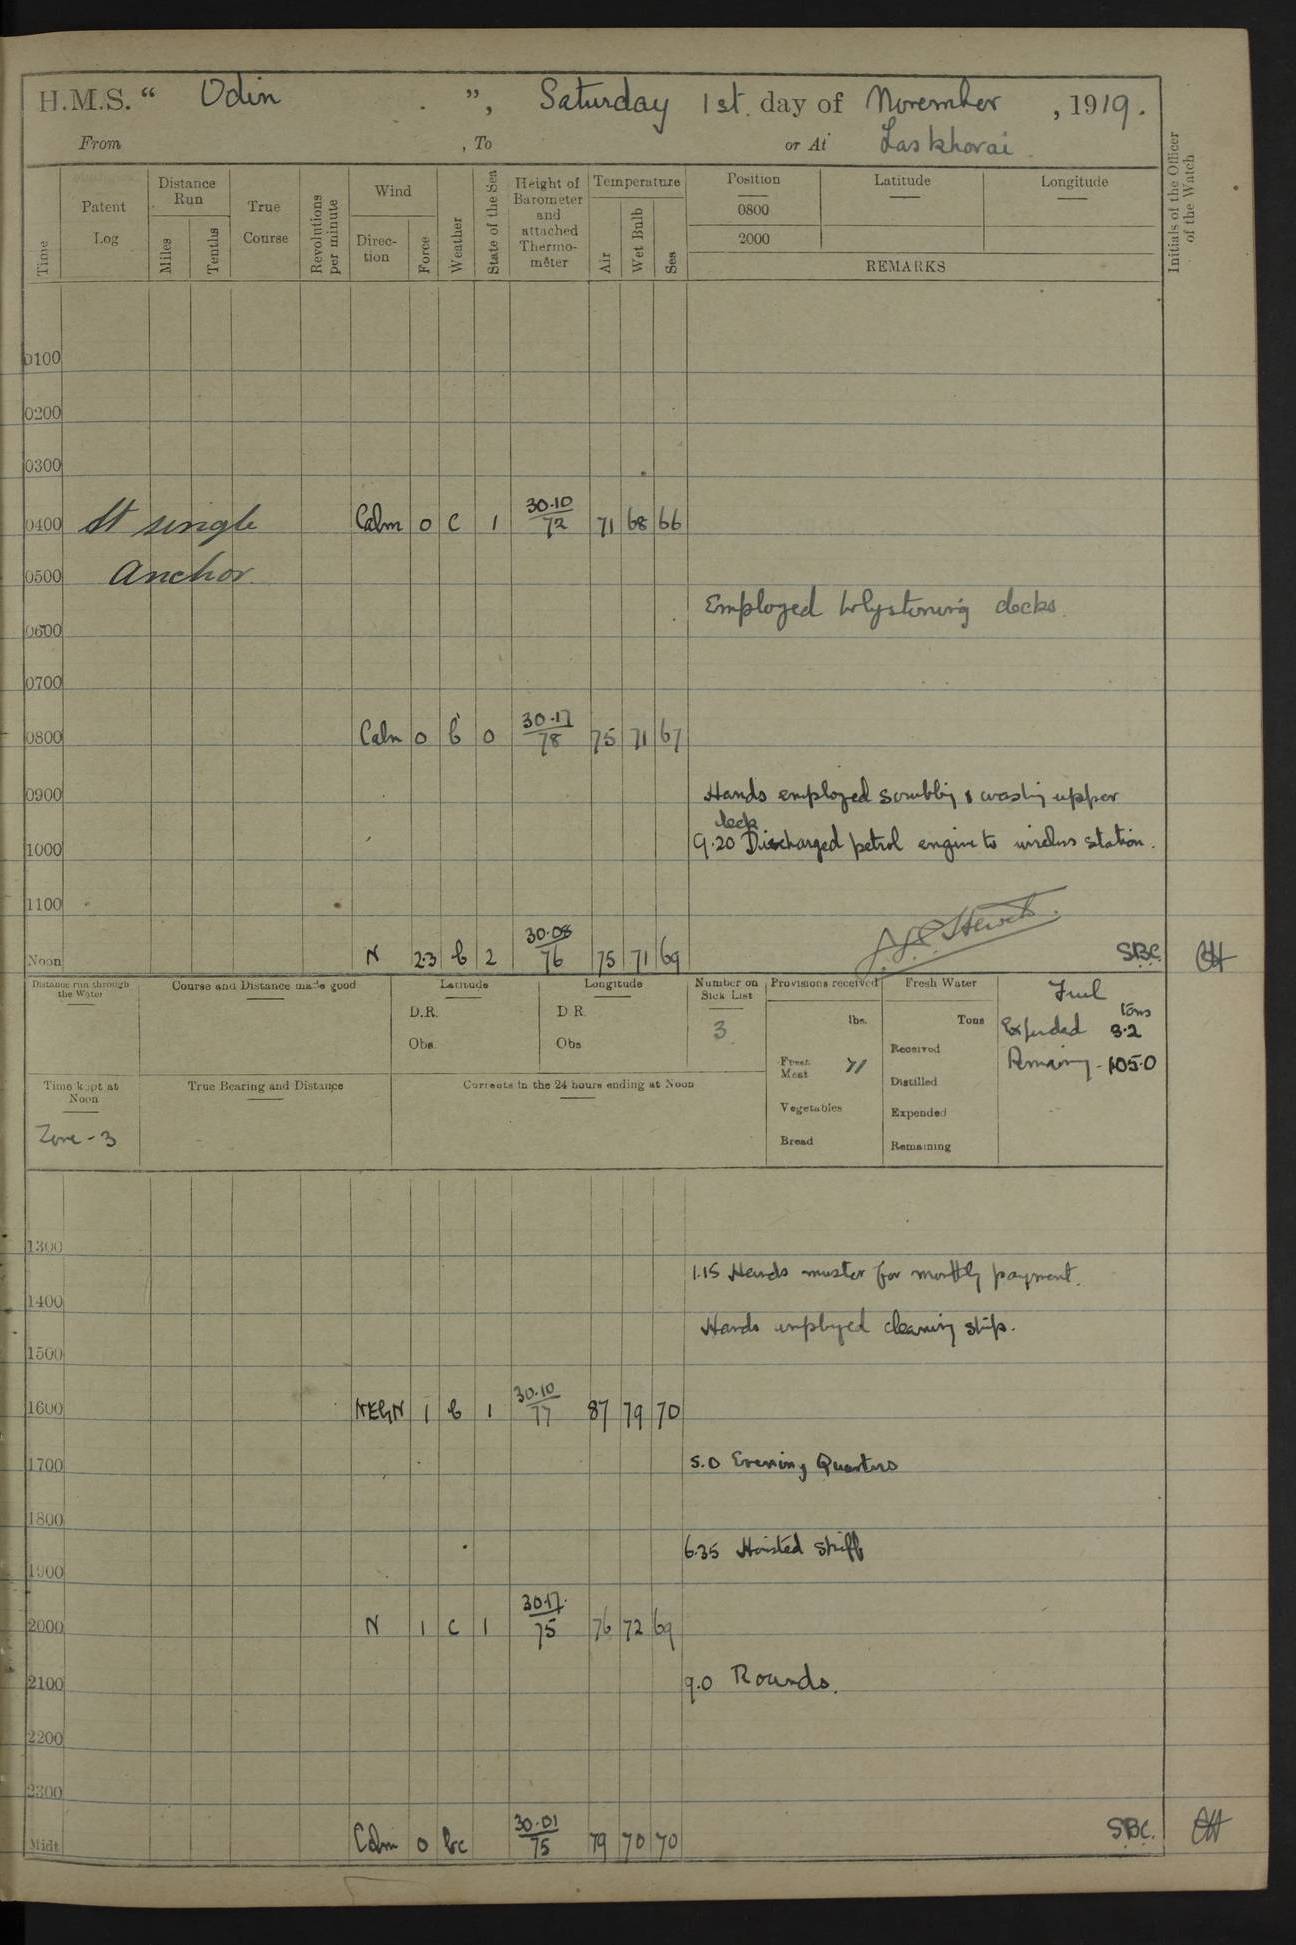 H.M.S. “ Odin ”, Saturday 1st. day of November , 1919.
From , To or At Laskhorai
Time
Patent Log
Distance Run
Miles
Tenths
True Course
Revolutions per minute
Wind
Direction
Force
Weather
State of the Sea
Height of Barometer and attached Thermometer
Temperature
Air
Wet Bulb
Sea
Position
Latitude
Longitude
0800
2000
REMARKS
Initials of the Officer of the Watch
0100
0200
0300
0400 At single Calm 0 c 1 30.10/72 71 68 66
0500 Anchor.
Employed holystoning decks.
0600
0700
0800 Calm 0 b 0 30.17/78 75 71 67
0900 Hands employed scrubbing & washing upper
deck
9.20 Discharged petrol engine to wireless station.
1000
1100
Noon N 2.3 b 2 30.08/76 75 71 69 SBC
Distance run through the Water
Course and Distance made good
Latitude
D.R.
Obs.
Longitude
D R.
Obs
Number on Sick List
3
Provisions received
lbs.
Fresh Meat 71
Vegetables
Bread
Fresh Water
Tons
Received
Distilled
Expended
Remaining
Fuel
tons
Expended 3.2
Remaining - 105.0
Time kept at Noon
Zone - 3
True Bearing and Distance
Currents in the 24 hours ending at Noon
1300
1.15 Hands muster for monthly payment.
1400
Hands employed cleaning ship.
1500
1600 NEbN 1 b 1 30.10/77 87 79 70
1700 5.0 Evening Quarters
1800
6.35 Hoisted skiff
1900
2000 N 1 c 1 30.17/75 76 72 69
2100 9.0 Rounds.
2200
2300
Midt Calm 0 bc 30.01/75 79 70 70 SBC.